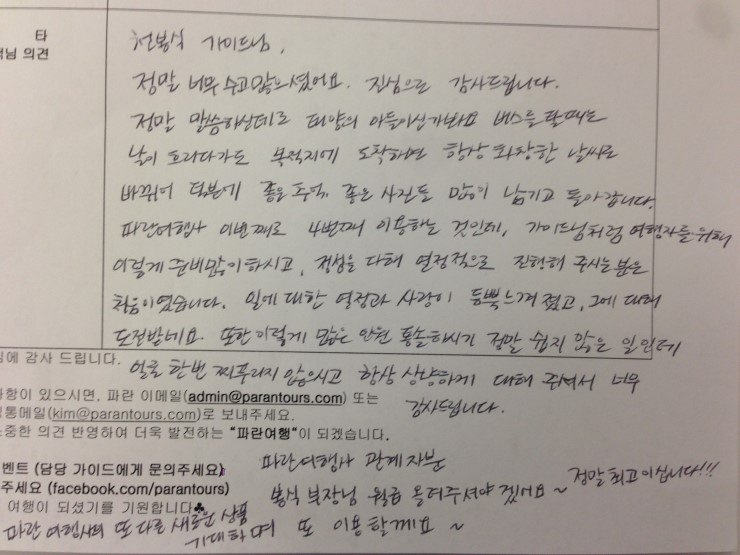 타
님 의견
천봉식 가이드님,
정말 너무 수고많으셨어요. 진심으로 감사드립니다.
정말 말씀하신데로 태양의 아들이신가봐요 버스를 탈때는
날이 흐리다가도 목적지에 도착하면 항상 화창한 날씨로
바뀌어 덕분에 좋은 추억, 좋은 사진들 많이 남기고 돌아갑니다.
파란여행사 이번째로 4번째 이용하는 것인데, 가이드님처럼 여행자를 위해
이렇게 준비많이 하시고, 정성을 다해 열정적으로 진행해 주시는 분은
처음이었습니다. 일에 대한 열정과 사랑이 듬뿍 느껴졌고, 그에 대해
도전받네요. 또한 이렇게 많은 인원 통솔하시기 정말 쉽지 않은 일인데
얼굴 한번 찌푸리지 않으시고 항상 상냥하게 대해 주셔서 너무
감사드립니다.
에 감사 드립니다.
항이 있으시면, 파란 이메일(admin@parantours.com) 또는
통메일(kim@parantours.com)로 보내주세요.
중한 의견 반영하여 더욱 발전하는 "파란여행"이 되겠습니다.
벤트 (담당 가이드에게 문의주세요)
주세요 (facebook.com/parantours)
여행이 되셨기를 기원합니다♣
파란여행사 관계자분
봉식 부장님 월급 올려주셔야 겠어요~ 정말 최고이십니다!!!
파란 여행사의 또 다른 새로운 상품
기대하며 또 이용할께요~